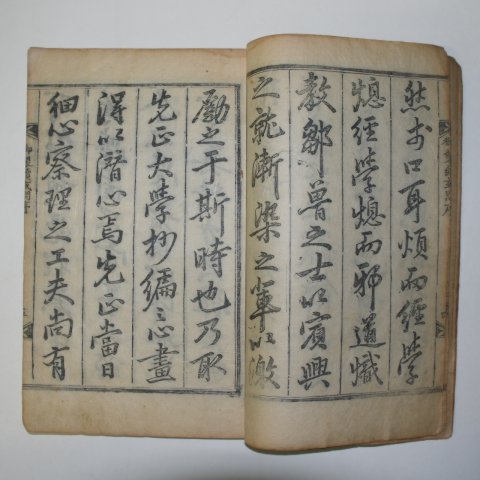 然於口耳煩而經學
熄經學熄而邪道熾
敎鄒魯之士以賓興
之詑漸染之輩以激
勵之于斯時也乃取
先正大學抄編心畫
淂以潛心焉先正當日
細心察理之工夫尚有